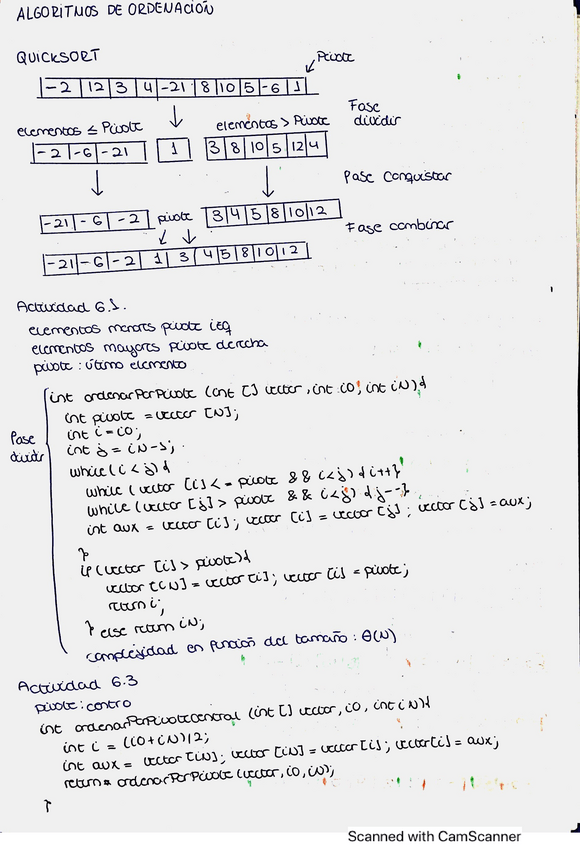 ALGORITMOS DE ORDENACIÓN
QUICKSORT
Pivote
-2 | 12 | 3 | 4 | -21 | 8 | 10 | 5 | -6 | 1
Fase dividir
elementos ≤ Pivote
elementos > Pivote
-2 | -6 | -21
1
3 | 8 | 10 | 5 | 12 | 4
Fase Conquistar
-21 | -6 | -2
pivote
3 | 4 | 5 | 8 | 10 | 12
Fase combinar
-21 | -6 | -2 | 1 | 3 | 4 | 5 | 8 | 10 | 12
Actividad 6.1.
elementos menors pivote izq
elementos mayors pivote derecha
pivote : último elemento
Fase dividir
int ordenarPorPivote (int [] vector, int i0, int iN){
int pivote = vector [N];
int i = i0;
int j = iN-1;
while(i < j){
while (vector [i] <= pivote && i<j) {i++}
while (vector [j] > pivote && i<j) {j--}
int aux = vector [i]; vector [i] = vector [j]; vector [j] = aux;
}
if (vector [i] > pivote){
vector [iN] = vector [i]; vector [i] = pivote;
return i;
} else return iN;
complejidad en función del tamaño : Θ(N)
Actividad 6.3
pivote: centro
int ordenarPorPivoteCentral (int [] vector, i0, int iN){
int i = (i0+iN)/2;
int aux = vector [iN]; vector [iN] = vector [i]; vector[i] = aux;
return ordenarPorPivote (vector, i0, iN);
}
Scanned with CamScanner